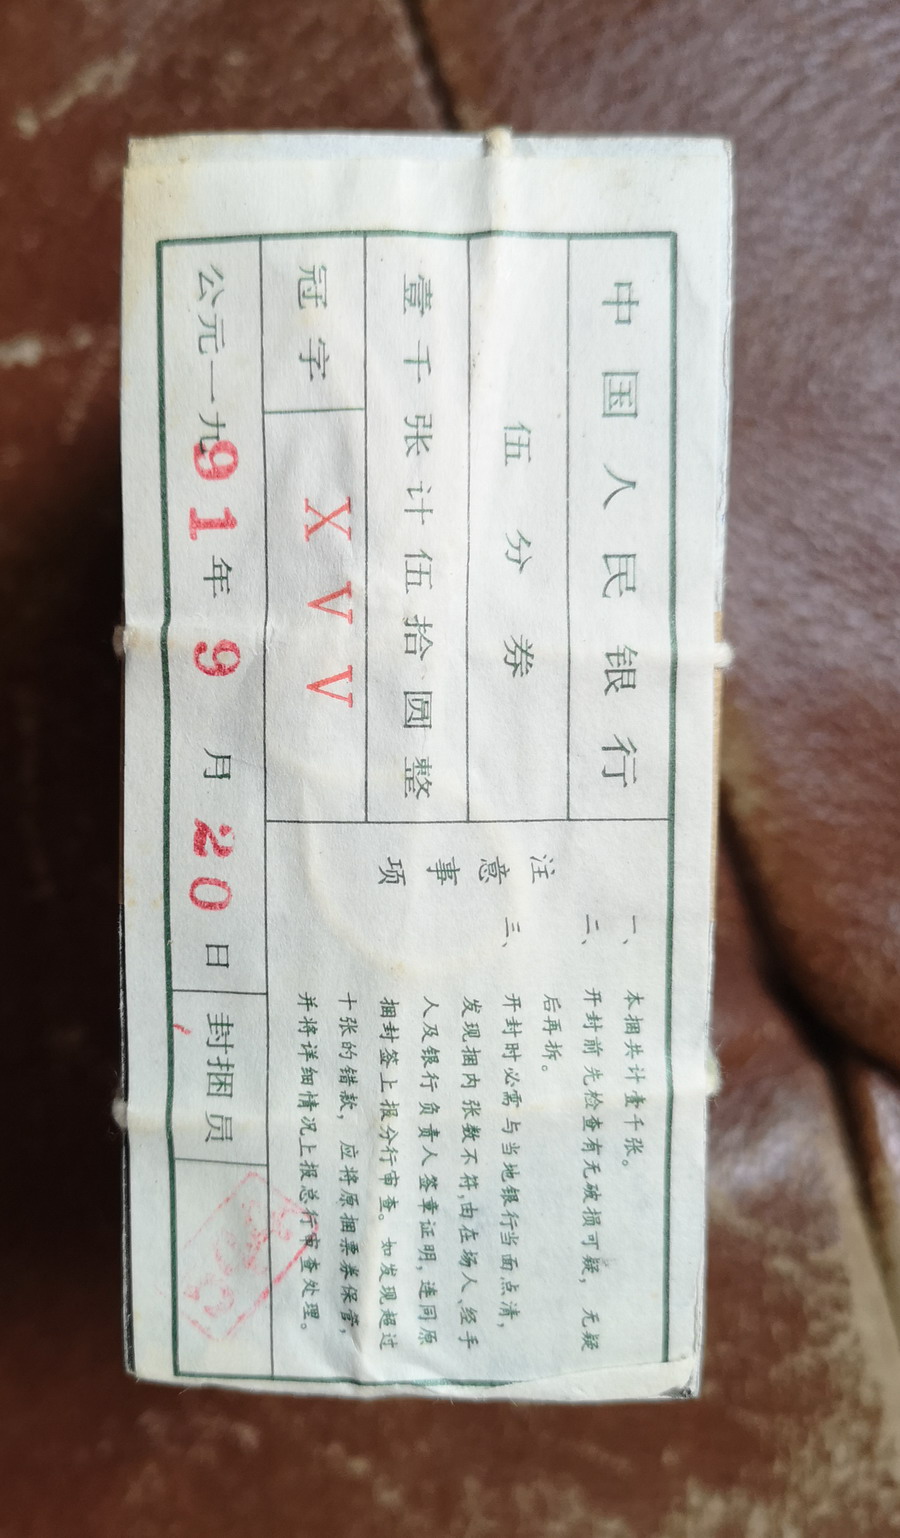 中国人民银行
伍分券
壹千张计伍拾圆整
冠字 X V V
公元一九91年9月20日 封捆员
注意事项
一、本捆共计壹千张。
二、开封前先检查有无破损可疑，无疑
后再拆。
三、开封时必需与当地银行当面点清，
发现捆内张数不符，由在场人、经手
人及银行负责人签章证明，连同原
捆封签上报分行审查。如发现超过
十张的错款，应将原捆票券保管，
并将详细情况上报总行审查处理。